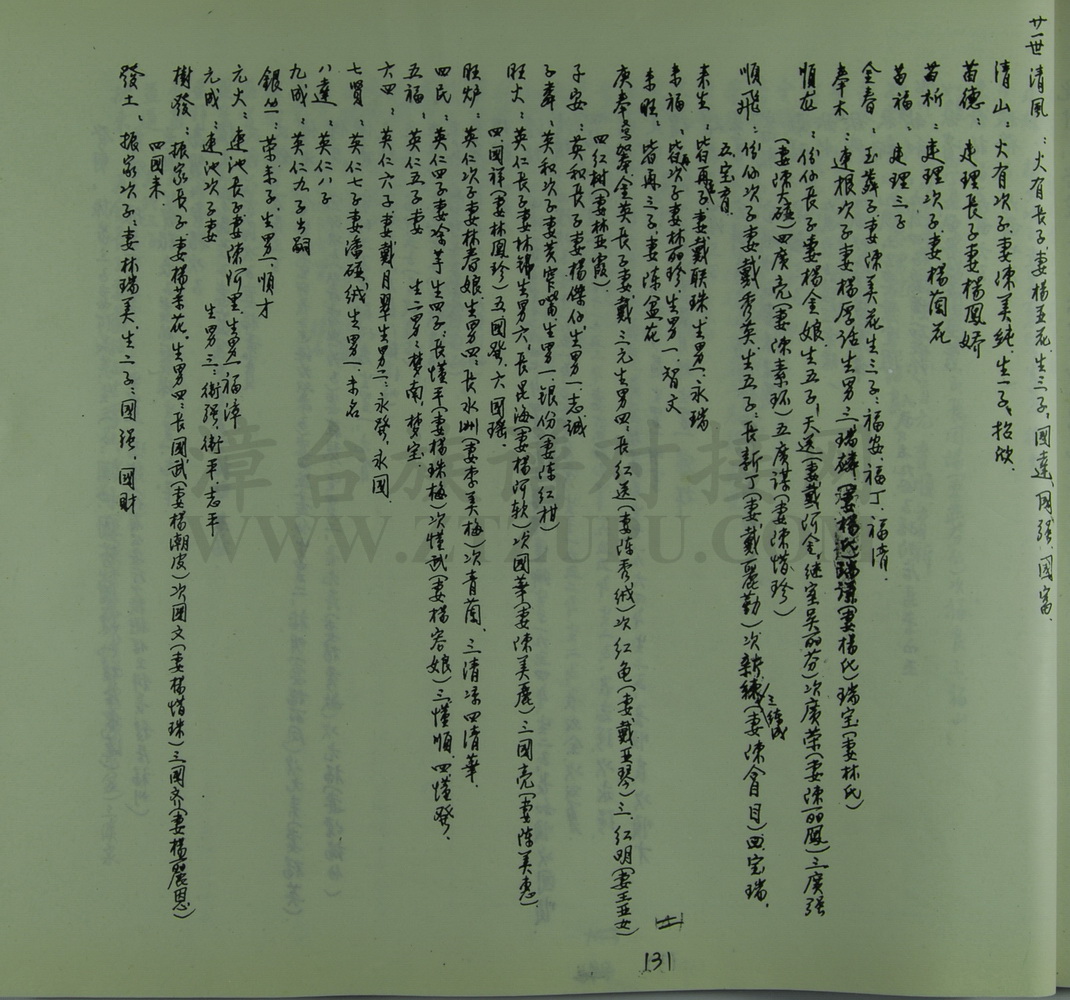 廿一世 清風：火有長子妻楊玉花生三子，國達、國強、國富、
清山：火有次子妻陳美純生一子、招欣、
苗德：建理長子妻楊鳳娇
苗析：建理次子妻楊蘭花
苗福：建理三子
金春：玉 子妻陳美花生三子：福安、福丁、福清、
奉木：連根次子妻楊厚 生男三瑞麟(妻楊氏)瑞謙(妻楊氏)瑞宝(妻林氏)
順在：份仔長子妻楊金娘生五子，天送(妻戴阿金，继室吴丽芬)次廣荣(妻陳丽鳳)三廣强
(妻陳大碰)四廣亮(妻陳素环)五廣謀(妻陳惜珍)
順飛：份仔次子妻戴秀英生五子：長新丁(妻戴麗勤)次新練(妻陳 目)三 成 四宝瑞、
五宝育
來生：皆再 子妻戴联珠生男一永瑞
來福：皆再次子妻林丽珍生男一、智文
來旺：皆再三子、妻陈盆花
庚奉：金英長子妻戴三元生男四：長红送(妻陈秀绒)次红龟(妻戴亚琴)三、红明(妻王亚女)
四红树(妻林亚霞)
子安：英和長子妻楊傑仔生男一志誠
子寿：英和次子妻黄窄嘴生男一银份(妻陈红柑)
旺火：英仁長子妻林 生男六，長崑海(妻楊阿软)次國華(妻陳美麗)三國亮(妻陈美惠)
四國祥(妻林鳳珍)五國發、六國瑤、
旺炉：英仁次子妻林春娘生男四：長水洲(妻李美梅)次青蘭、三清 四清華、
四民：英仁四子妻 芋生四子、長懂平(妻楊珠梅)次懂武(妻楊容娘)三懂順、四懂發、
五福：英仁五子妻 生二男：梦南，梦宝、
六四：英仁六子妻戴月翠生男二：永發，永国、
七賢：英仁七子妻潘碰绒生男一、未名
八達：英仁八子
九成：英仁九子出嗣
銀丝：荣 子生男一順才
元火：連池長子妻陳阿里生男一福漳
元成：連池次子妻 生男三：衛强，衛平，志平
樹發：振家長子妻楊荣花生男四：長國武(妻楊潮皮)次國文(妻楊惜珠)三國齐(妻楊麗恩)
四國来、
發土：振家次子妻林瑞美、生二子：國强、國財
131
章台族谱对接
WWW.ZTZUPU.COM